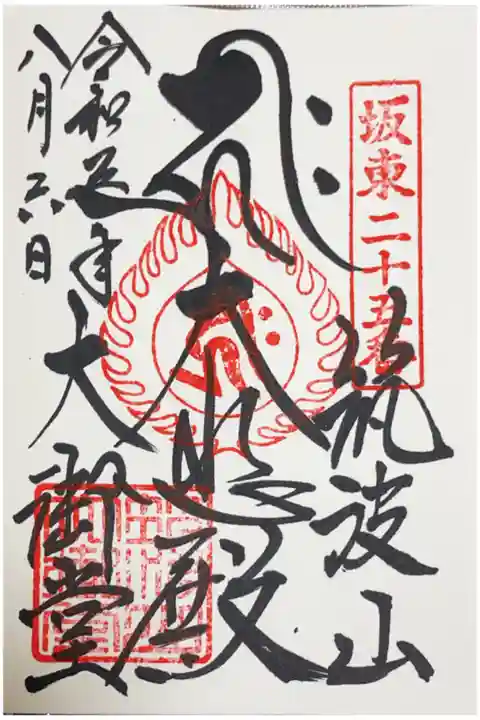 坂東二十五番
筑波山
大悲殿
令和五年
八月六日
大御堂